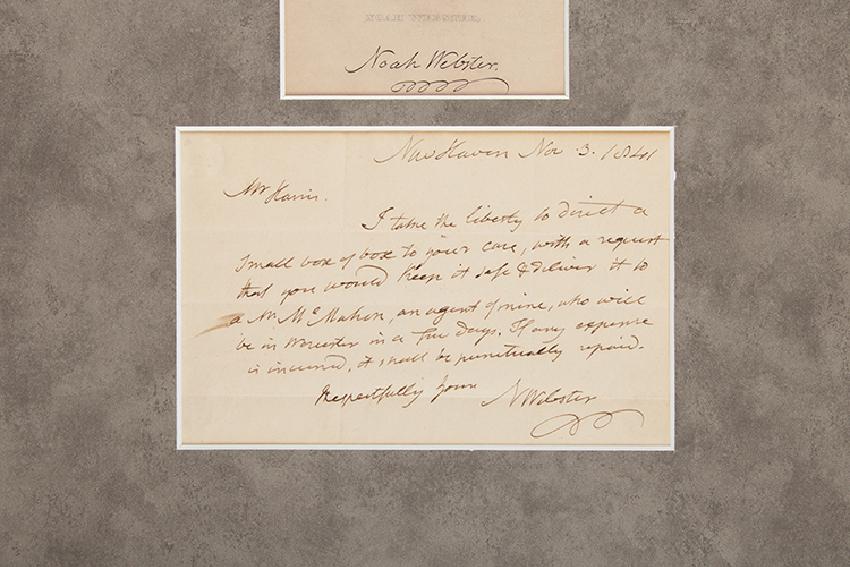 NOAH WEBSTER.
Noah Webster.
New Haven Nov 3. 1841
Mr Harris.
I take the liberty to direct a
small box of to your care, with a request
that you would keep it safe & deliver it to
a Mr McMahon, an agent of mine, who will
be in Worcester in a few days. If any expense
is incurred, it shall be punctually repaid.
Respectfully yours NWebster